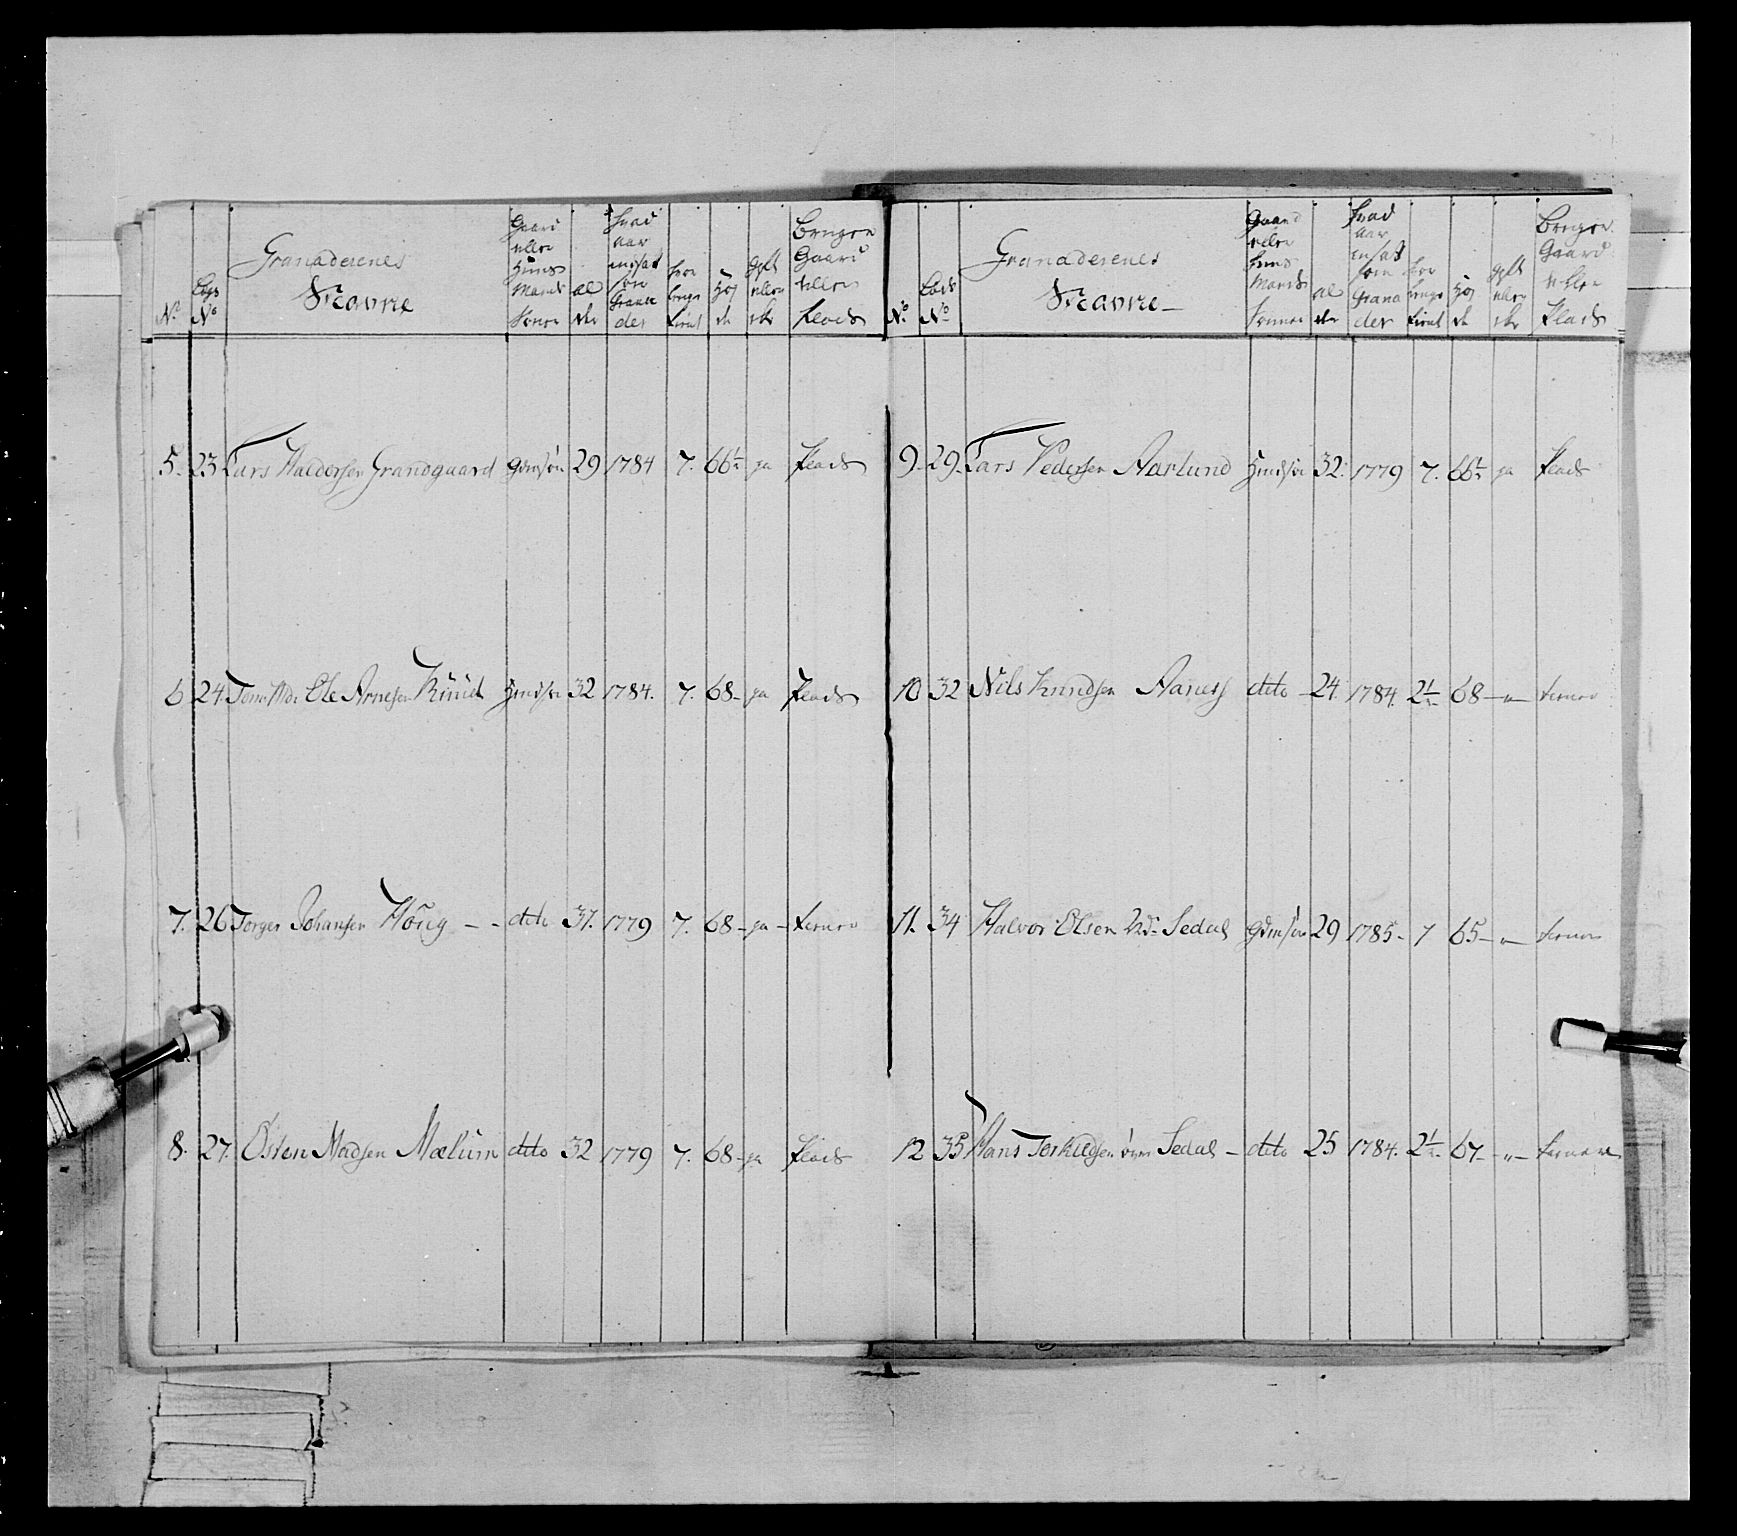 No
Lægs No
Granaderenes Navne
Gaard eller Huus Mands Sønner
al der
Hvad aar ansat som Grana der
Høj de
gift eller ikke
Bruger Gaard eller Plads
5. 23 Lars Haldorsen Grandgaard Gdmsøn 29 1784 7. 66½ ja Plads
6 24 Ole Arnesen Hmdsøn 32 1784. 7. 68 – ja Plads
7. 26 Torger Johansen Houg – – dito 37. 1779 7. 68 – ja –
8. 27. Osten Madsen Mælum dito 32 1779 7. 68 – ja Plads
No.
No
Granaderenes Navne –
Gaard eller Huus Mands Sønner
al der
Hvad aar ansat som Grana der
Høj de
gift eller ikke
Bruger Gaard eller Plads
9. 29. Lars Pedersen Aarlund Hmdsøn 32. 1779 7. 66½ ja Plads
10 32 Nils Knudsen Aaness dito 24. 1784. 2½ 68 – „ –
11. 34 Halvor Olsen Sedal Gdmsøn 29 1785 – 7 65 – „ –
12 35 Hans Terkelsen Sedal – dito 25 1784. 2½ 67 – „ –